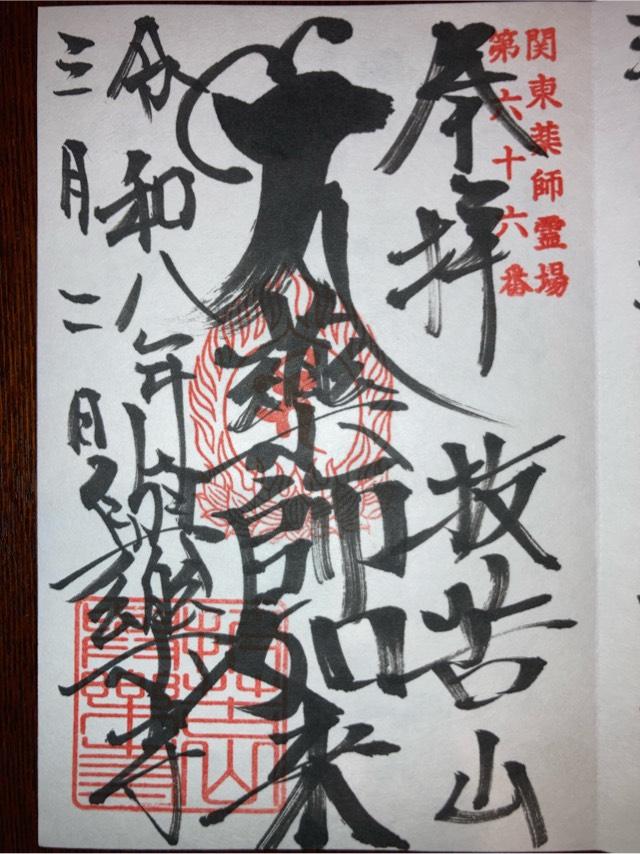 関東薬師霊場
第六十六番
奉拝
抜苦山
薬師如来
令和八年
三月二日
寺